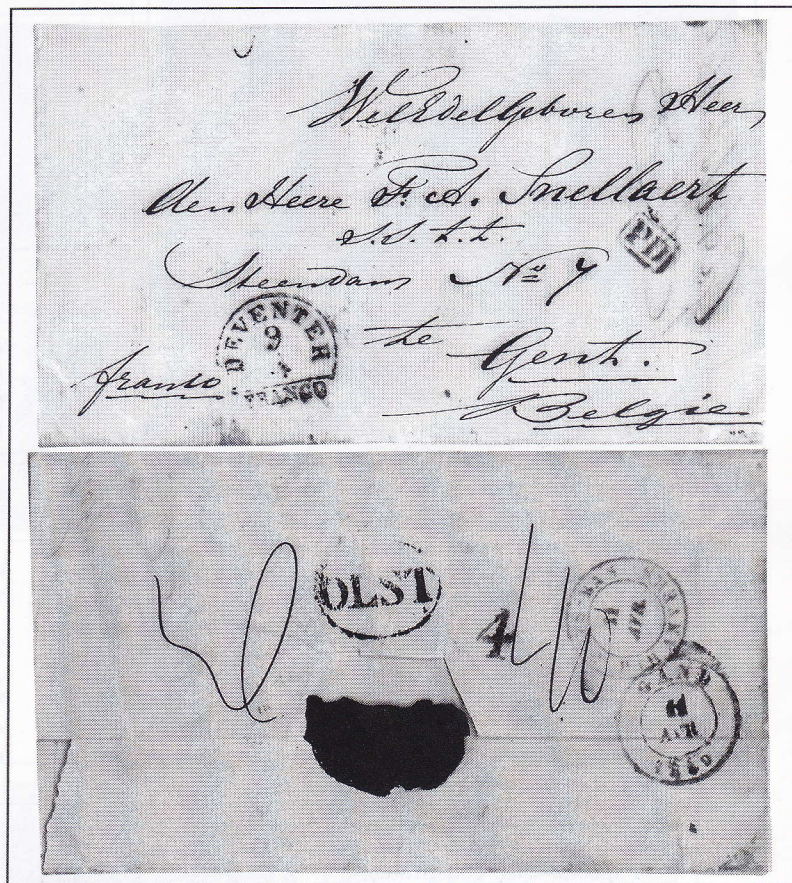 WelEdelGeboren Heer
den Heere F. A. Snellaert
S.S. t.t.
Steendam No 7
PD
DEVENTER
9
4
FRANCO
te
Gent.
franco
Belgie
OLST
4
11
AVR
GAND
11
AVR